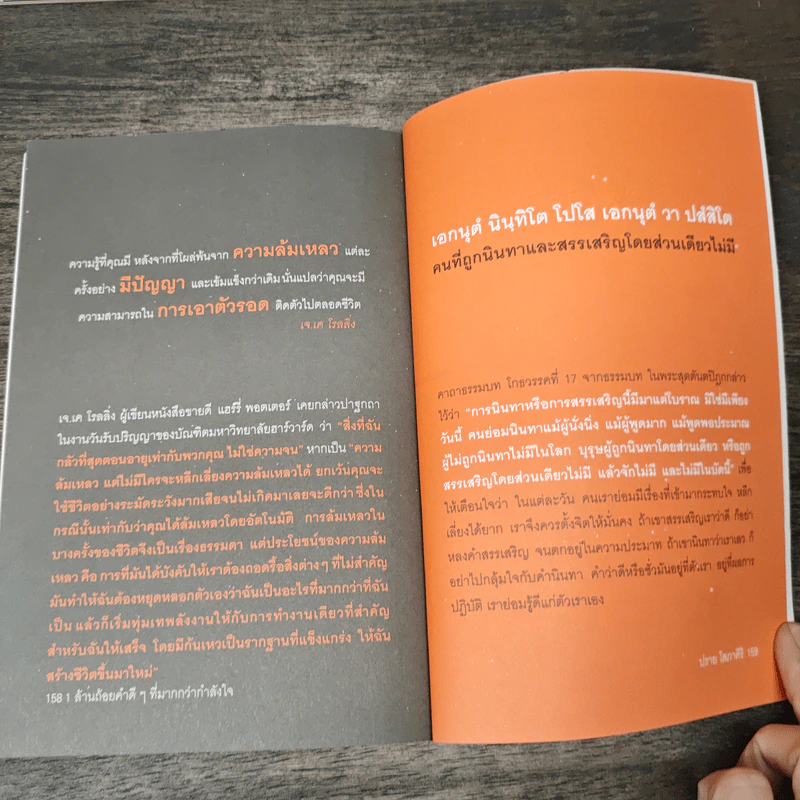 ความรู้ที่คุณมี หลังจากที่โผล่พ้นจาก ความล้มเหลว แต่ละ
ครั้งอย่าง มีปัญญา และเข้มแข็งกว่าเดิม นั่นแปลว่าคุณจะมี
ความสามารถใน การเอาตัวรอด ติดตัวไปตลอดชีวิต
เจ.เค โรลลิ่ง
เจ.เค โรลลิ่ง ผู้เขียนหนังสือขายดี แฮร์รี่ พอตเตอร์ เคยกล่าวปาฐกถา
ในงานวันรับปริญญาของบัณฑิตมหาวิทยาลัยฮาร์วาร์ด ว่า "สิ่งที่ฉัน
กลัวที่สุดตอนอายุเท่ากับพวกคุณ ไม่ใช่ความจน" หากเป็น "ความ
ล้มเหลว แต่ไม่มีใครจะหลีกเลี่ยงความล้มเหลวได้ ยกเว้นคุณจะ
ใช้ชีวิตอย่างระมัดระวังมากเสียจนไม่เกิดมาเลยจะดีกว่า ซึ่งใน
กรณีนั้นเท่ากับว่าคุณได้ล้มเหลวโดยอัตโนมัติ การล้มเหลวใน
บางครั้งของชีวิตจึงเป็นเรื่องธรรมดา แต่ประโยชน์ของความล้ม
เหลว คือ การที่มันได้บังคับให้เราต้องถอดรื้อสิ่งต่างๆ ที่ไม่สำคัญ
มันทำให้ฉันต้องหยุดหลอกตัวเองว่าฉันเป็นอะไรที่มากกว่าที่ฉัน
เป็น แล้วก็เริ่มทุ่มเทพลังงานให้กับการทำงานเดียวที่สำคัญ
สำหรับฉันให้เสร็จ โดยมีก้นเหวเป็นรากฐานที่แข็งแกร่ง ให้ฉัน
สร้างชีวิตขึ้นมาใหม่"
158 1 ล้านถ้อยคำดี ๆ ที่มากกว่ากำลังใจ
เอกนฺตํ นินฺทิโต โปโส เอกนฺตํ วา ปสํสิโต
คนที่ถูกนินทาและสรรเสริญโดยส่วนเดียวไม่มี
คาถาธรรมบท โกธวรรคที่ 17 จากธรรมบท ในพระสุตตันตปิฎกกล่าว
ไว้ว่า "การนินทาหรือการสรรเสริญนี้มีมาแต่โบราณ มิใช่มีเพียง
วันนี้ คนย่อมนินทาแม้ผู้นั่งนิ่ง แม้ผู้พูดมาก แม้พูดพอประมาณ
ผู้ไม่ถูกนินทาไม่มีในโลก บุรุษผู้ถูกนินทาโดยส่วนเดียว หรือถูก
สรรเสริญโดยส่วนเดียวไม่มี แล้วจักไม่มี และไม่มีในบัดนี้" เพื่อ
ให้เตือนใจว่า ในแต่ละวัน คนเราย่อมมีเรื่องที่เข้ามากระทบใจ หลีก
เลี่ยงได้ยาก เราจึงควรตั้งจิตให้มั่นคง ถ้าเขาสรรเสริญเราว่าดี ก็อย่า
หลงคำสรรเสริญ จนตกอยู่ในความประมาท ถ้าเขานินทาว่าเราเลว ก็
อย่าไปกลุ้มใจกับคำนินทา คำว่าดีหรือชั่วมันอยู่ที่ตัวเรา อยู่ที่ผลการ
ปฏิบัติ เราย่อมรู้ดีแก่ตัวเราเอง
ปราย โสภาศิริ 159